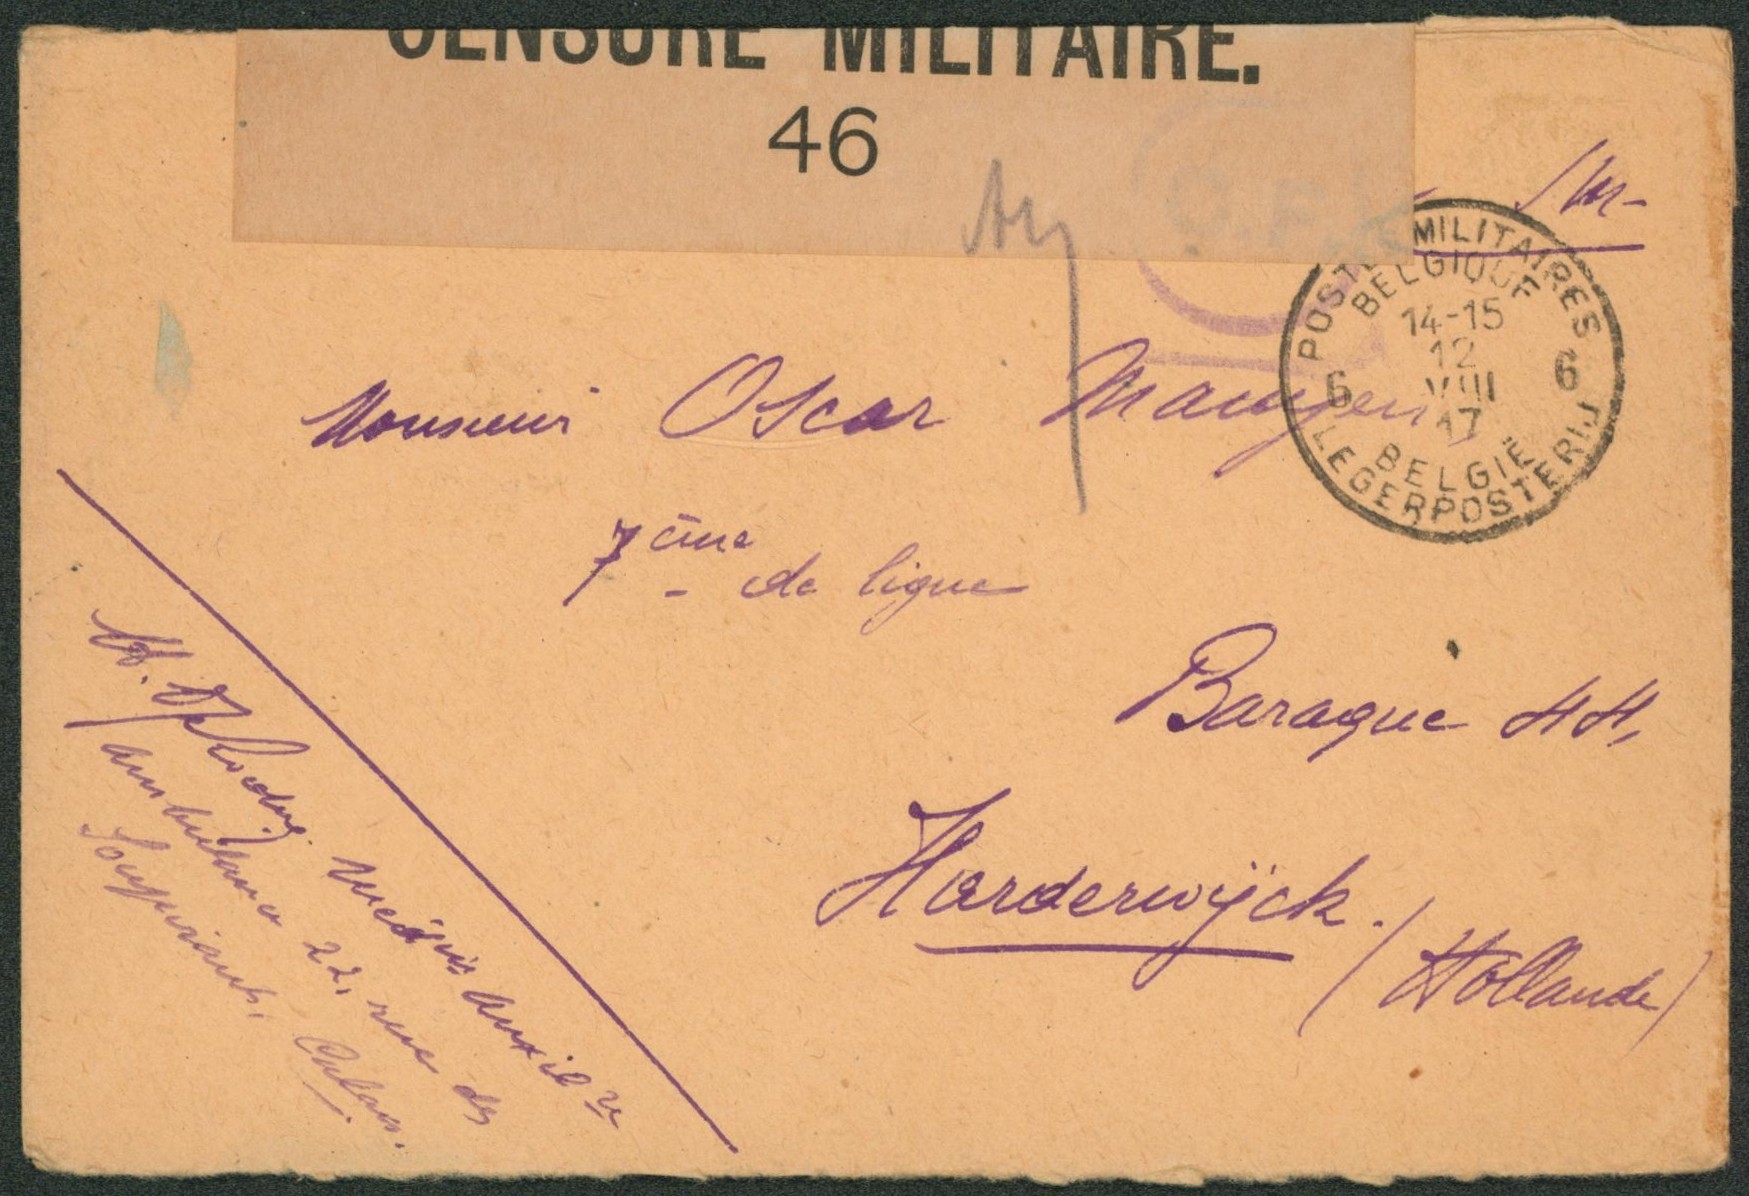 CENSURE MILITAIRE.
46
S.M.
POSTES MILITAIRES
BELGIQUE
14-15
12
VIII
17
6 6
BELGIË
LEGERPOSTERIJ
Monsieur Oscar
7ème de ligne
Baraque
Harderwijck.
(Hollande)
Médecin auxil
ambulance 22, rue des
Soupirants, Calais.